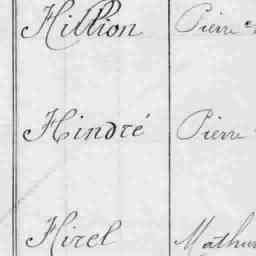 Hillion Pierre
Hindré Pierre
Hirel Mathur